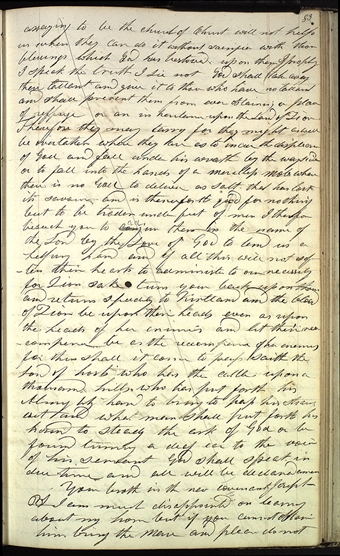 assaying to be the church of Christ will not help
us when they can do it without sacrifice with those
blessings which God has bestowed upon them I prophesy
I speak the truth I lie not God shall take away
their talent and give it to those who have no talent
and shall prevent them from ever obtaining a place
of refuge or an inheritance upon the Land of Zion
Therefore they may tarry for they might as well
be overtaken where they are as to incur the displeasure
of God and fall under his wrath by the way side
or to fall into the hands of a merciless mob where
there is no God to deliver as salt that has lost
its savour and is thenceforth good for nothing
but to be troden under feet of men I therefore
beseech you to enjoin them in the name of
the Lord by the Son of God to lend us a
helping hand and if all this will not sof
ten their hearts to administer to our necessity
for Zion sake turn your back upon them
and return speedily to Kirtland and the blood
of Zion be upon their heads even as upon
the heads of her enemies and let their recompense
be as the recompense of her enemies
for thus shall it come to pass saith the
Lord of hosts who has the cattle upon a
thousand hills who has put forth his
Almighty hand to bring to pass his strange
act and what man shall put forth his
hand to steady the ark of God or be
found turning a deaf ear to the voice
of his servant God shall speak in
due time and all will be declared amen
Your broth in the new covenant
PS I am most disappointed on
about my home but if you cannot obtain
bring the Mare and please do not